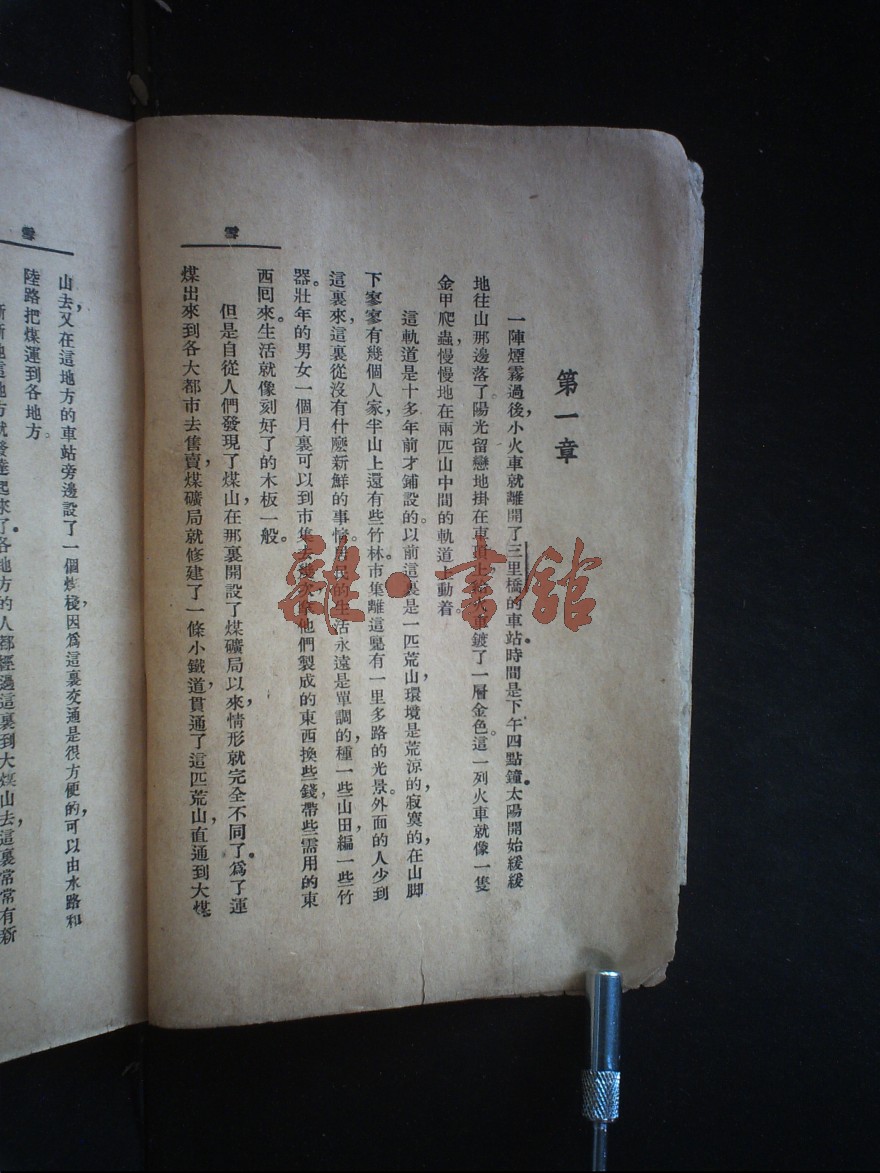 雪
第一章
一陣煙霧過後，小火車就離開了三里橋的車站。時間是下午四點鐘。太陽開始緩緩
地往山那邊落了。陽光留戀地掛在車頂上，給火車鍍了一層金色。這一列火車就像一隻
金甲爬蟲，慢慢地在兩匹山中間的軌道上動着。
這軌道是十多年前才鋪設的。以前這裏是一匹荒山，環境是荒涼的，寂寞的。在山脚
下寥寥有幾個人家，半山上還有些竹林。市集離這裏有一里多路的光景。外面的人少到
這裏來，這裏從沒有什麽新鮮的事情。居民的生活永遠是單調的，種一些山田，編一些竹
器。壯年的男女一個月裏可以到市集去幾次，拿他們製成的東西換些錢，帶些需用的東
西囘來。生活就像刻好了的木板一般。
但是自從人們發現了煤山，在那裏開設了煤礦局以來，情形就完全不同了。爲了運
煤出來到各大都市去售賣，煤礦局就修建了一條小鐵道，貫通了這匹荒山，直通到大煤
雪
山去，又在這地方的車站旁邊設了一個煤棧，因爲這裏交通是很方便的，可以由水路和
陸路把煤運到各地方。
漸漸地這地方就發達起來了。各地方的人都經過這裏到大煤山去，這裏常常有新
雜·書館